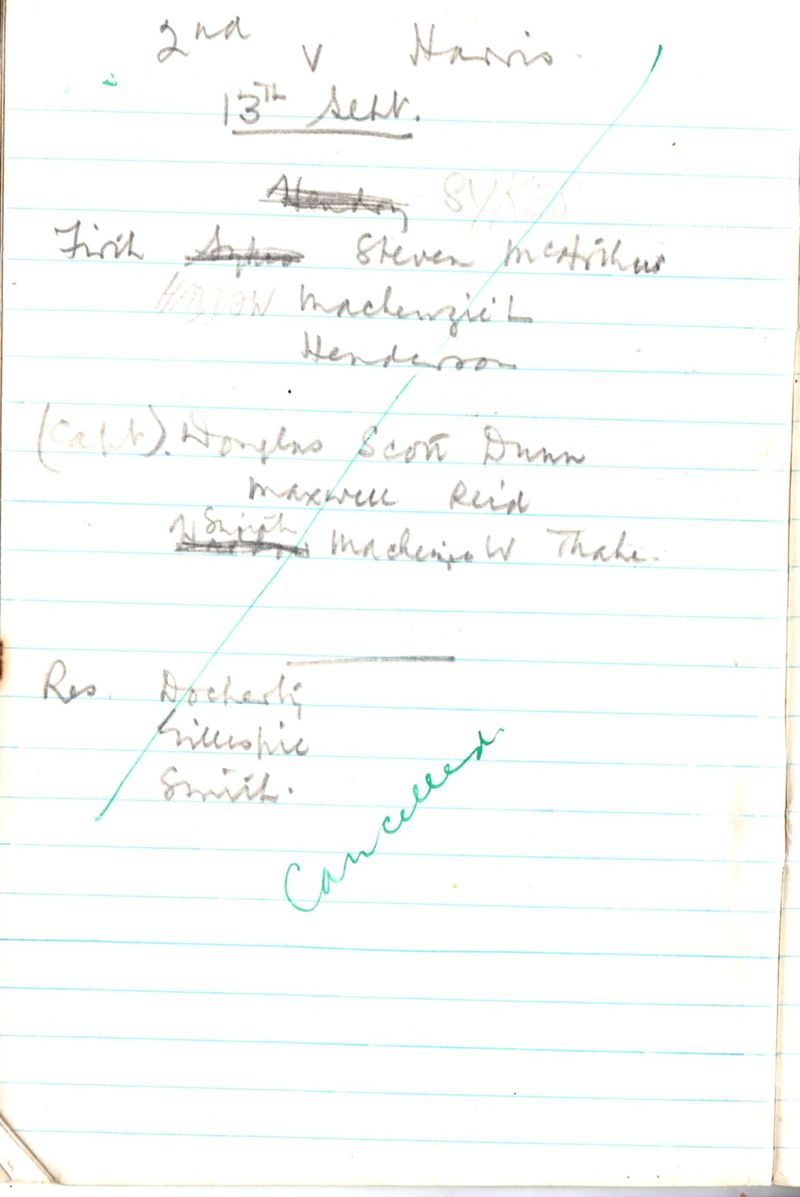 2nd v Harris.
13TH Sept.
Hendry SYKES
Firth Sykes Steven McArthur
Mackenzie L
Henderson
(Capt). Douglas Scott Dunn
Maxwell Reid
Smith Mackenzie W Thake.
Res. Docherty
Gillespie
Smith.
Cancelled